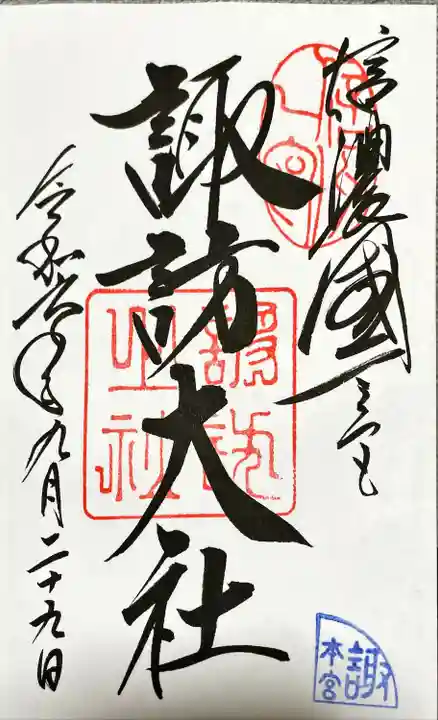 信濃國一之宮
諏訪大社
令和六年九月二十九日
諏訪
本宮